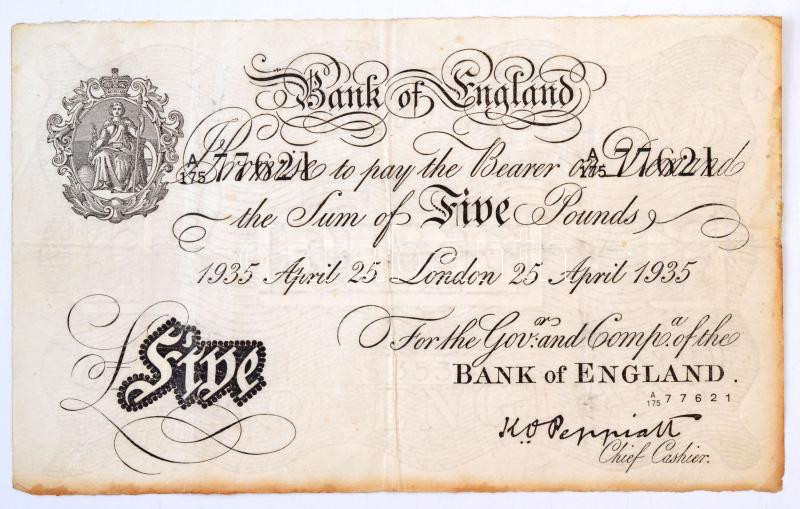 Bank of England
A/175 77621 A/175 77621
I Promise to pay the Bearer on Demand
the Sum of Five Pounds
1935 April 25 London 25 April 1935
For the Govr. and Compa. of the
BANK of ENGLAND.
A/175 77621
£Five
K.O. Peppiatt
Chief Cashier.